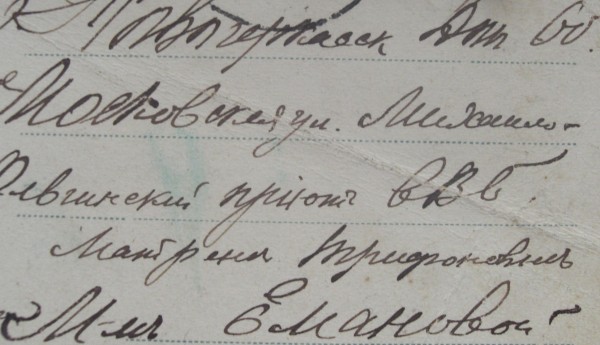 Новочеркасск Дон. об.
Московская ул. Михайло-
Ольгинский пріютъ ЕВБ.
Матрень Трифоновнь
Емановой